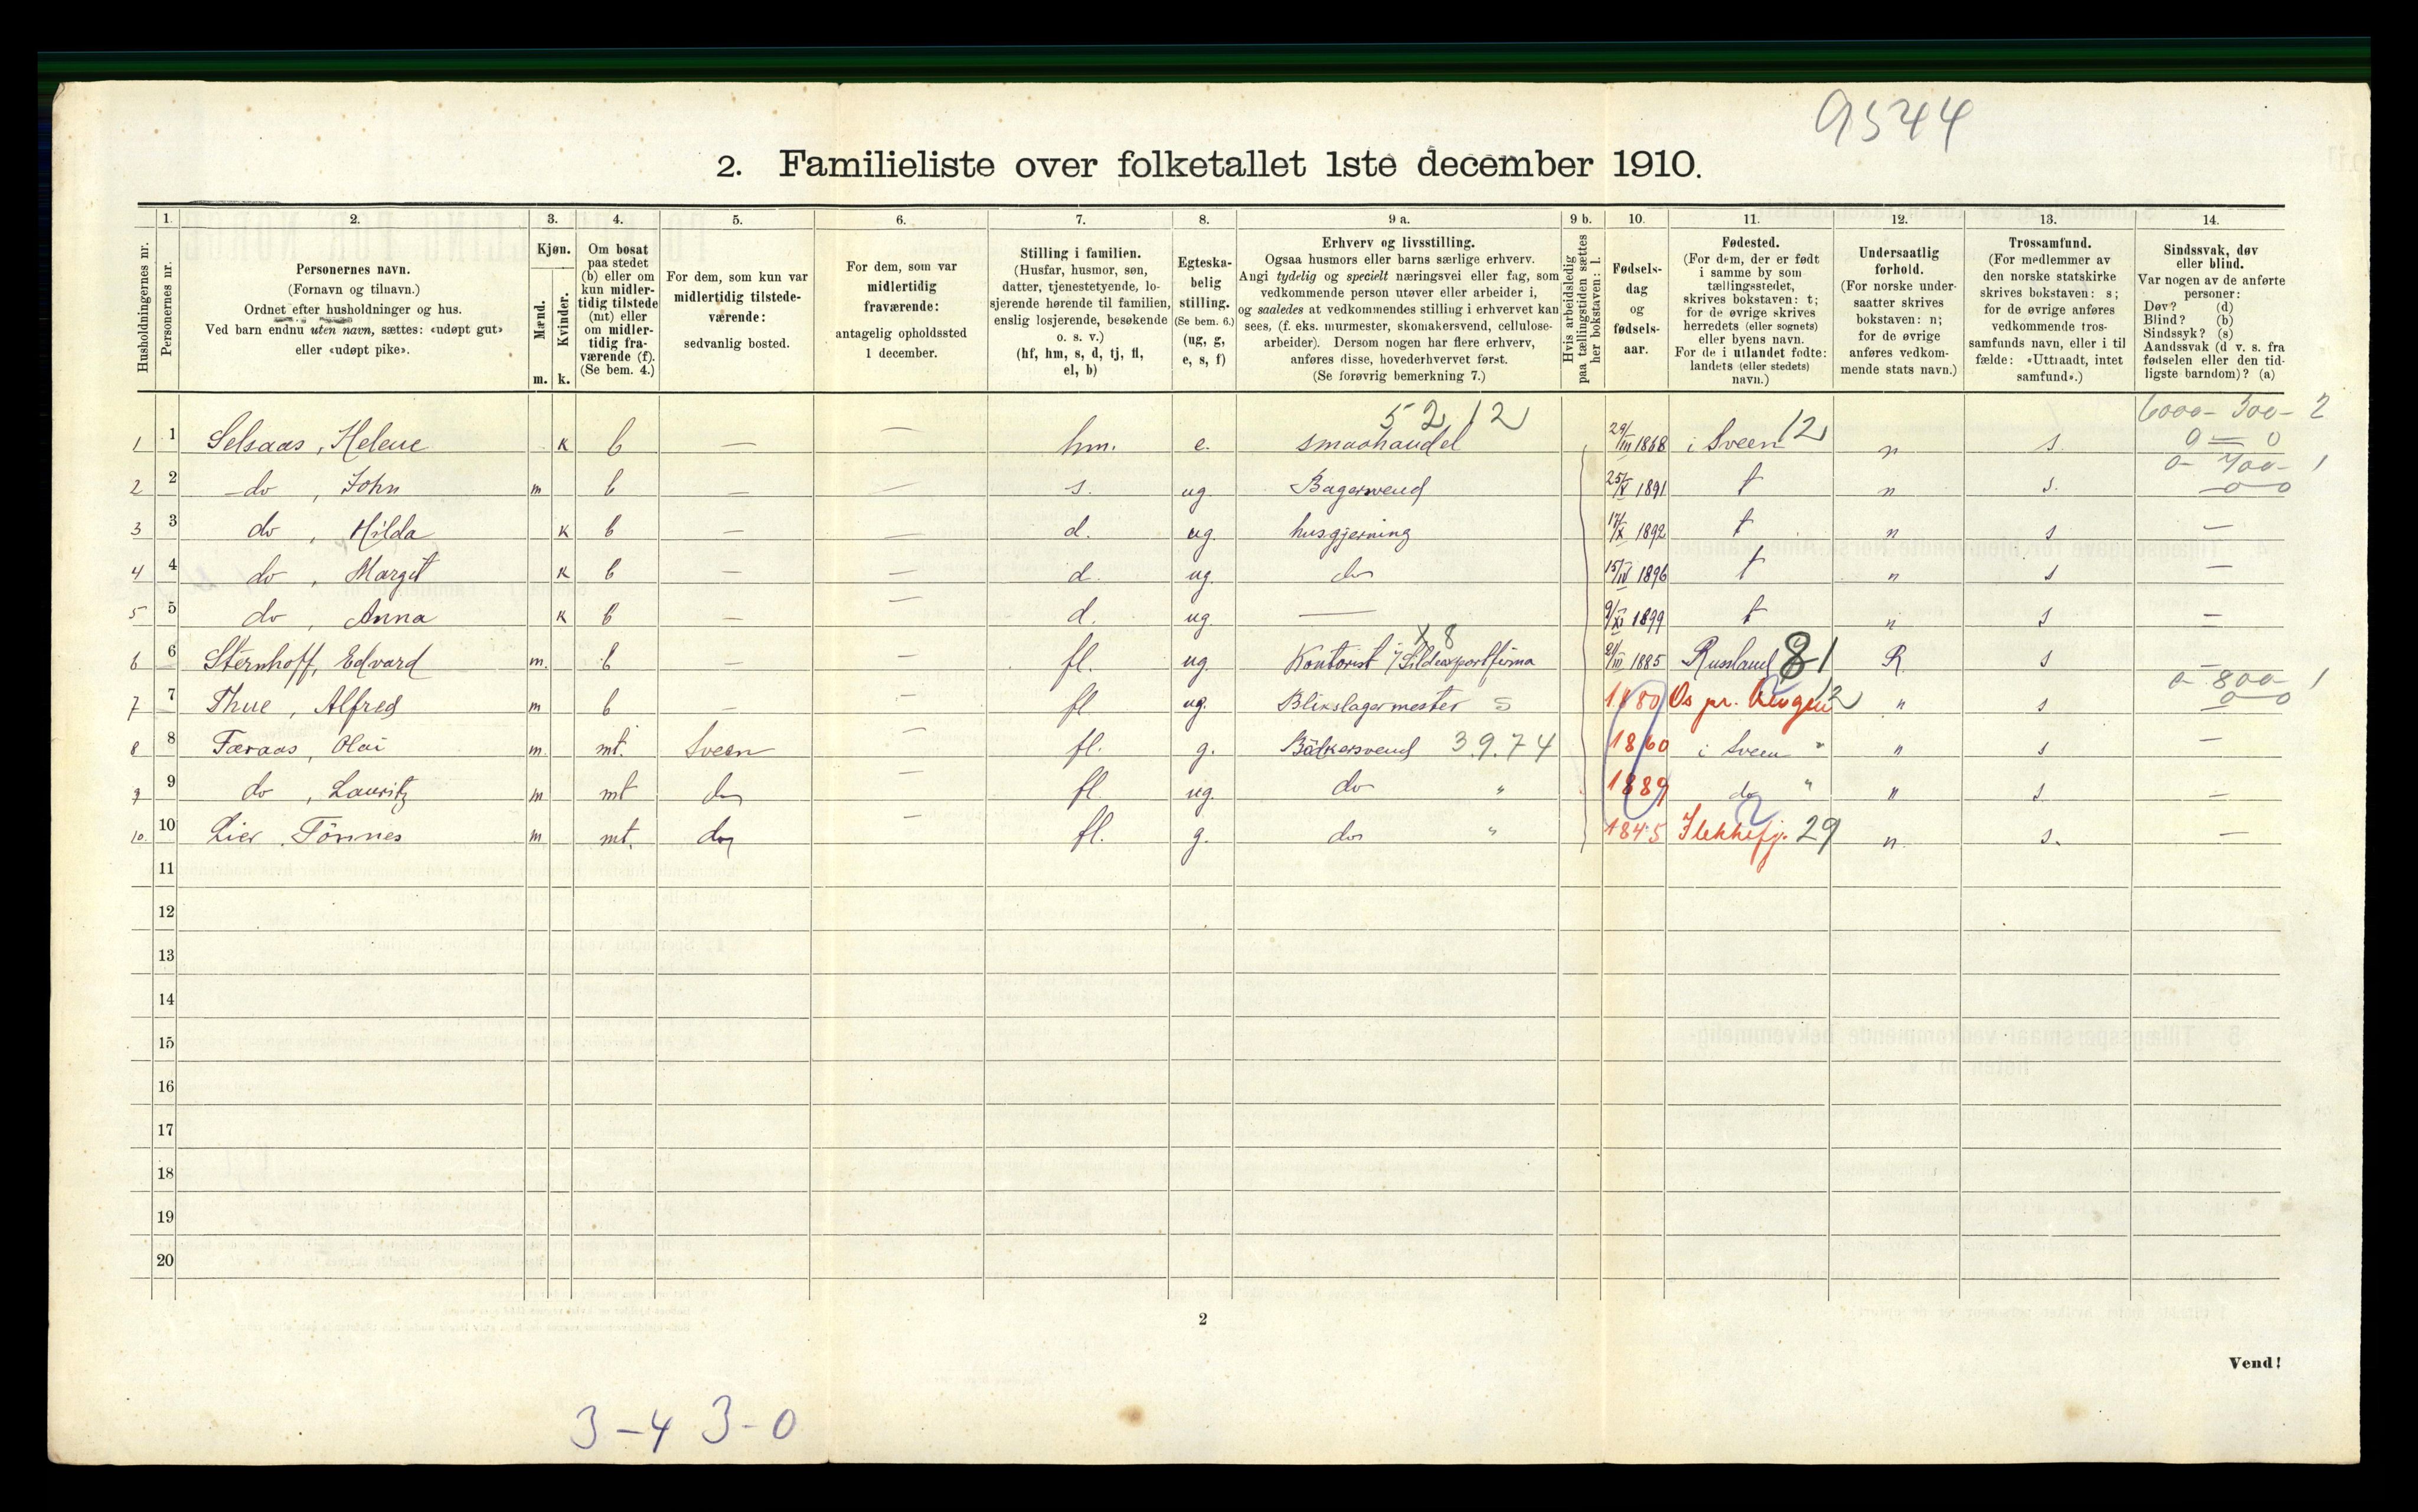 9544
2. Familieliste over folketallet 1ste december 1910.
Husholdningernes nr.
1. Personernes nr.
2. Personernes navn.
(Fornavn og tilnavn.)
Ordnet efter husholdninger og hus.
Ved barn endnu uten navn, sættes: «udøpt gut»
eller «udøpt pike».
3. Kjøn.
Mænd. m.
Kvinder. k.
4. Om bosat
paa stedet
(b) eller om
kun midler-
tidig tilstede
(mt) eller
om midler-
tidig fra-
værende (f).
(Se bem. 4.)
5. For dem, som kun var
midlertidig tilstede-
værende:
sedvanlig bosted.
6. For dem, som var
midlertidig
fraværende:
antagelig opholdssted
1 december.
7. Stilling i familien.
(Husfar, husmor, søn,
datter, tjenestetyende, lo-
sjerende hørende til familien,
enslig losjerende, besøkende
o. s. v.)
(hf, hm, s, d, tj, fl,
el, b)
8. Egteska-
belig
stilling.
(Se bem. 6.)
(ug, g,
e, s, f)
9 a. Erhverv og livsstilling.
Ogsaa husmors eller barns særlige erhverv.
Angi tydelig og specielt næringsvei eller fag, som
vedkommende person utøver eller arbeider i,
og saaledes at vedkommendes stilling i erhvervet kan
sees, (f. eks. murmester, skomakersvend, cellulose-
arbeider). Dersom nogen har flere erhverv,
anføres disse, hovederhvervet først.
(Se forøvrig bemerkning 7.)
9 b. Hvis arbeidsledig
paa tællingstiden sættes
her bokstaven: l.
10. Fødsels-
dag
og
fødsels-
aar.
11. Fødested.
(For dem, der er født
i samme by som
tællingsstedet,
skrives bokstaven: t;
for de øvrige skrives
herredets (eller sognets)
eller byens navn.
For de i utlandet fødte:
landets (eller stedets)
navn.)
12. Undersaatlig
forhold.
(For norske under-
saatter skrives
bokstaven: n;
for de øvrige
anføres vedkom-
mende stats navn.)
13. Trossamfund.
(For medlemmer av
den norske statskirke
skrives bokstaven: s;
for de øvrige anføres
vedkommende tros-
samfunds navn, eller i til
fælde: «Uttraadt, intet
samfund».)
14. Sindssvak, døv
eller blind.
Var nogen av de anførte
personer:
Døv? (d)
Blind? (b)
Sindssyk? (s)
Aandssvak (d. v. s. fra
fødselen eller den tid-
ligste barndom)? (a)
52 12 6000- 500- 2
1 1 Selsaas, Helene k b — — hm. e. smaahandel 29/III 1868 i Sveen 12 n s 0 — 0
0- 700- 1
2 2 do, John m b — — s. ug. Bagersvend 25/X 1891 t n s. — 0 0
3 3 do, Hilda k b — — d. ug. husgjerning 17/X 1892 t n s —
4 4 do, Margit k b — — d. ug. do 15/IV 1896 t n s —
5 5 do, Anna k b — — d. ug. — 9/XI 1899 t n s —
X 8
6 6 Sternhoff, Edvard m. b — — fl. ug. Kontorist i Sildexportfirma 21/III 1885 Russland 81 R. s —
0- 800- 1
7 7 Thue, Alfred m b — — fl ug. Blikslagermester 5 1880 Os pr. 12 " s — 0 0
8 8 Færaas, Olai m. mt. Sveen — fl. g. Bödkersvend 3.9.74 1860 i Sveen " " s —
9 9 do, Lauritz m mt do — fl. ug. do " 1889 do " " s. —
10. 10 Lier, Tönnes m mt. do — fl. g. do " 1845 Flekkefj. 29 n. s. —
11
12
13
14
15
16
17
18
19
20
2
Vend!
3-4 3-0